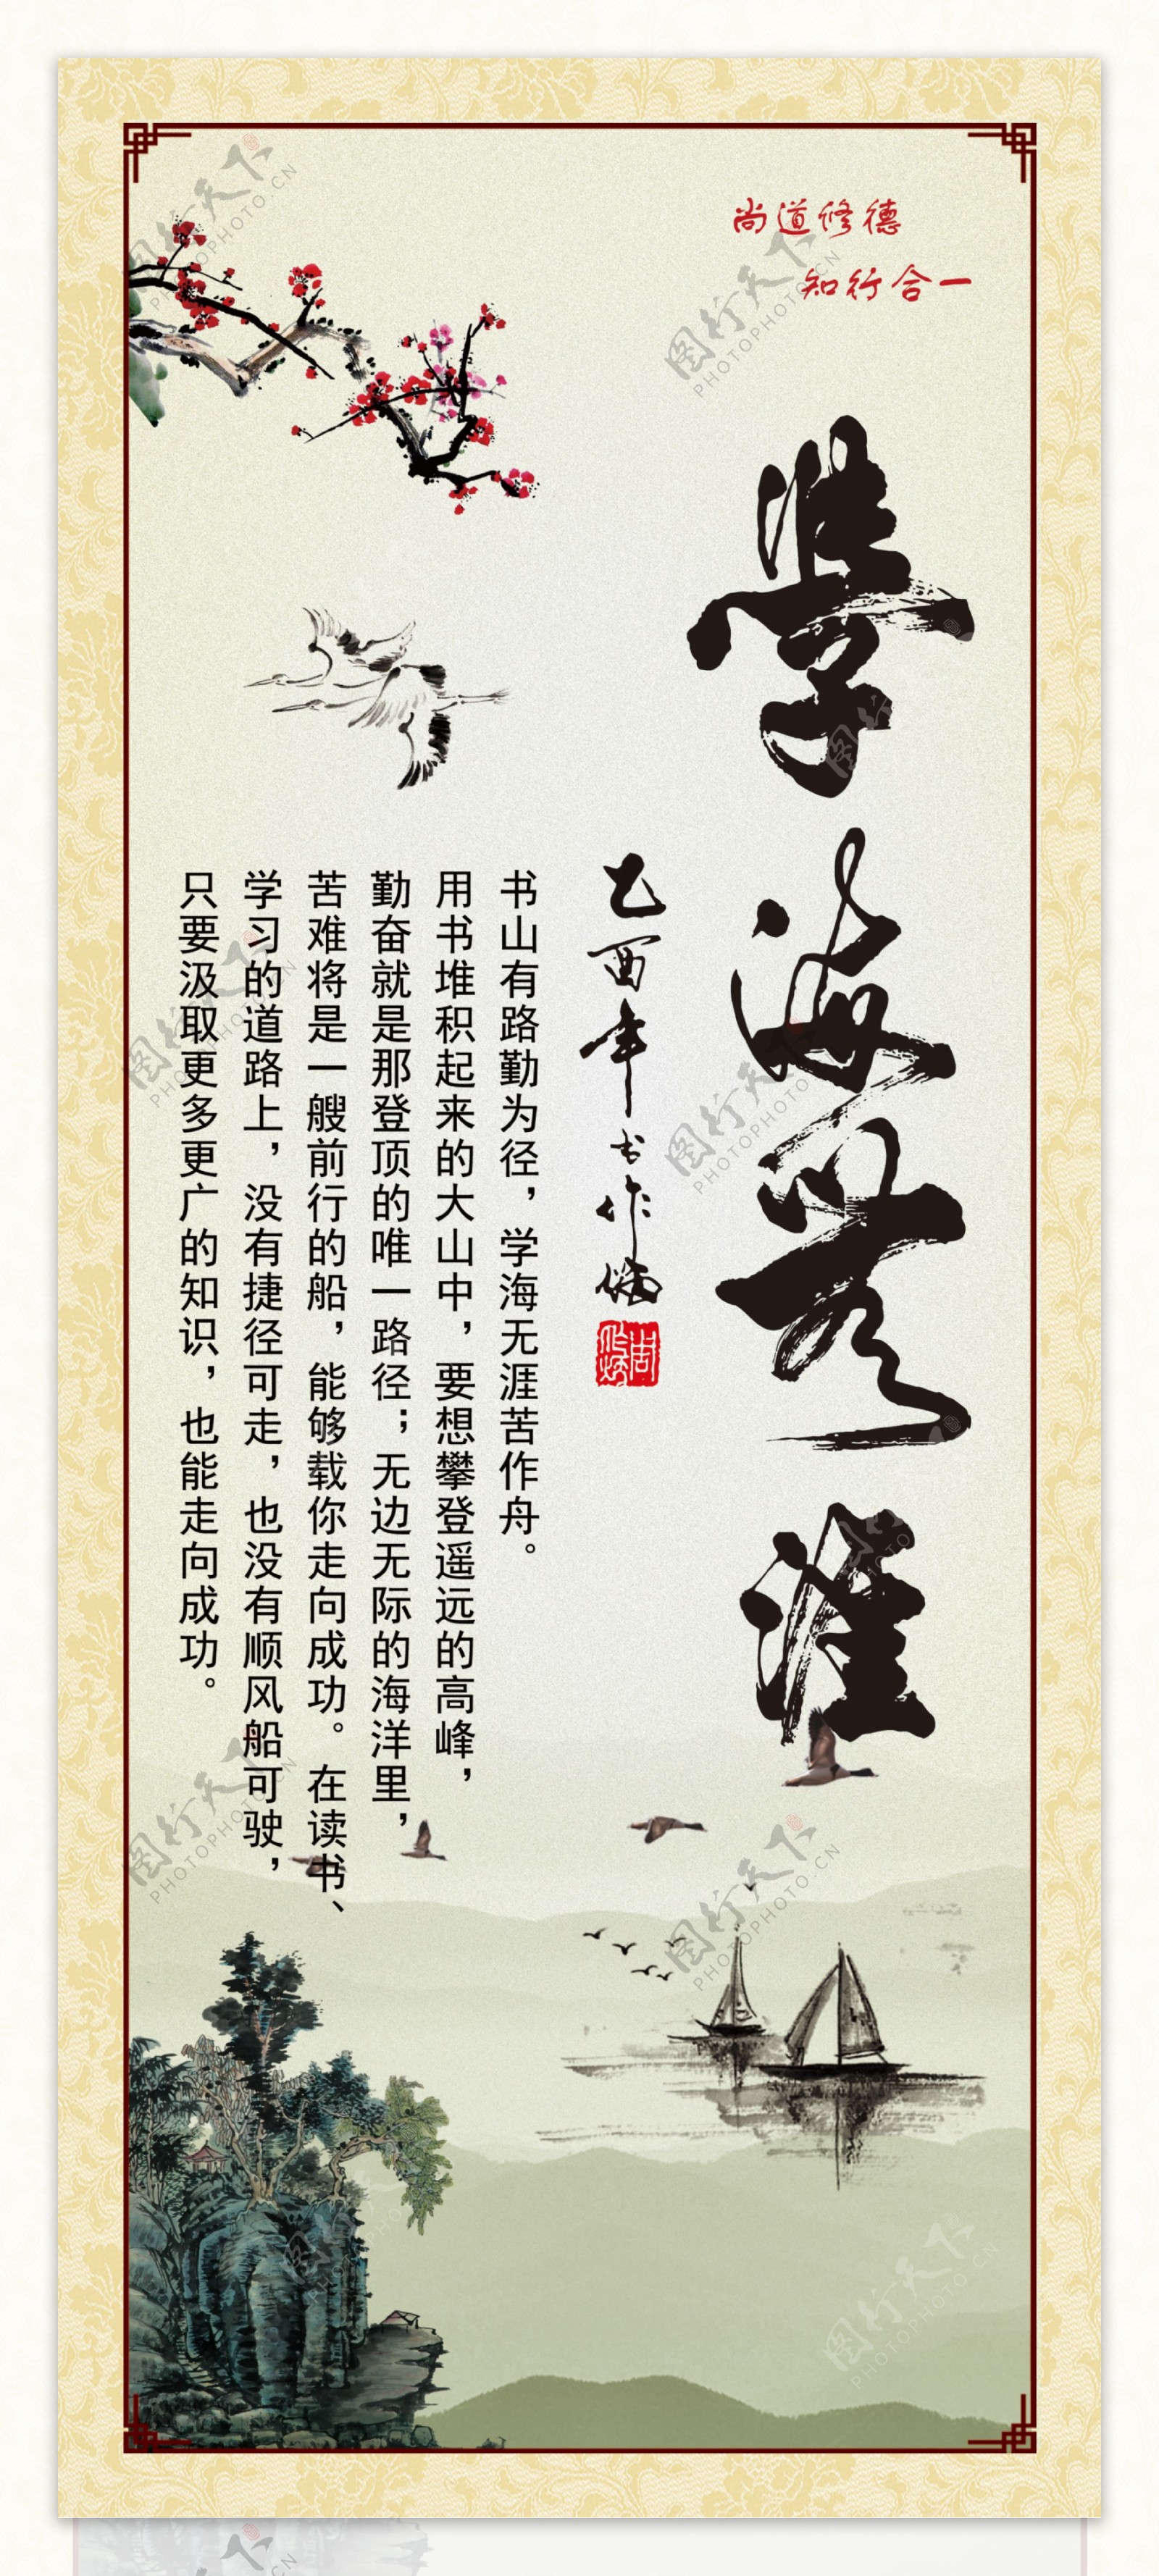 尚道修德
知行合一
学海无涯
乙酉年
书山有路勤为径，学海无涯苦作舟。
用书堆积起来的大山中，要想攀登遥远的高峰，
勤奋就是那登顶的唯一路径；无边无际的海洋里，
苦难将是一艘前行的船，能够载你走向成功。在读书、
学习的道路上，没有捷径可走，也没有顺风船可驶，
只要汲取更多更广的知识，也能走向成功。
图行天下
PHOTOPHOTO.CN